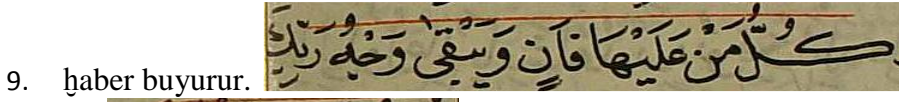 9. ḫaber buyurur. كُلُّ مَنْ عَلَيْهَا فَانٍ وَيَبْقٰى وَجْهُ رَبِّكَ